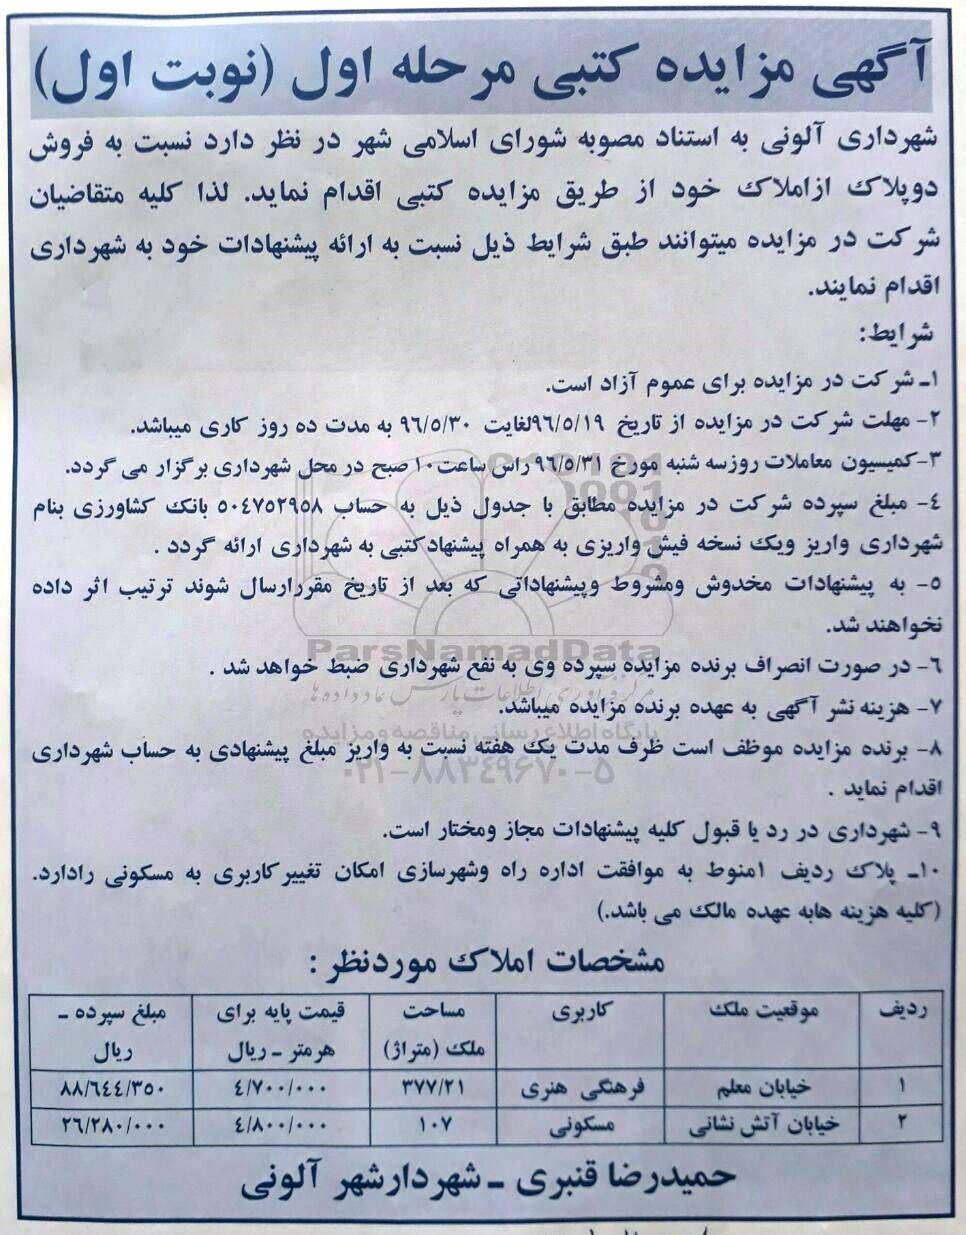 آگهی مزایده کتبی مرحله اول (نوبت اول)
شهرداری آلونی به استناد مصوبه شورای اسلامی شهر در نظر دارد نسبت به فروش
دوپلاک ازاملاک خود از طریق مزایده کتبی اقدام نماید. لذا کلیه متقاضیان
شرکت در مزایده میتوانند طبق شرایط ذیل نسبت به ارائه پیشنهادات خود به شهرداری
اقدام نمایند.
شرایط:
۱ـ شرکت در مزایده برای عموم آزاد است.
۲- مهلت شرکت در مزایده از تاریخ ۹۶/۵/۱۹لغایت ۹۶/۵/۳۰ به مدت ده روز کاری میباشد.
۳-کمیسیون معاملات روزسه شنبه مورخ ۹۶/۵/۳۱ راس ساعت۱۰ صبح در محل شهرداری برگزار می گردد.
۴- مبلغ سپرده شرکت در مزایده مطابق با جدول ذیل به حساب ۵۰۴۷۵۲۹۵۸ بانک کشاورزی بنام
شهرداری واریز ویک نسخه فیش واریزی به همراه پیشنهادکتبی به شهرداری ارائه گردد .
۵- به پیشنهادات مخدوش ومشروط وپیشنهاداتی که بعد از تاریخ مقررارسال شوند ترتیب اثر داده
نخواهند شد.
ParsNamadData
۶- در صورت انصراف برنده مزایده سپرده وی به نفع شهرداری ضبط خواهد شد .
مرکز فرآوری اطلاعات پارس نماد داده ها
۷- هزینه نشر آگهی به عهده برنده مزایده میباشد.
پایگاه اطلاع رسانی مناقصه و مزایده
۸- برنده مزایده موظف است ظرف مدت یک هفته نسبت به واریز مبلغ پیشنهادی به حساب شهرداری
۰۲۱-۸۸۳۴۹۶۷۰-۵
اقدام نماید .
۹- شهرداری در رد یا قبول کلیه پیشنهادات مجاز ومختار است.
۱۰ـ پلاک ردیف ۱منوط به موافقت اداره راه وشهرسازی امکان تغییرکاربری به مسکونی رادارد.
(کلیه هزینه هابه عهده مالک می باشد.)
مشخصات املاک موردنظر :
ردیف موقعیت ملک کاربری مساحت ملک (متراژ) قیمت پایه برای هرمتر ـ ریال مبلغ سپرده ـ ریال
۱ خیابان معلم فرهنگی هنری ۳۷۷/۲۱ ۴/۷۰۰/۰۰۰ ۸۸/۶۴۴/۳۵۰
۲ خیابان آتش نشانی مسکونی ۱۰۷ ۴/۸۰۰/۰۰۰ ۲۶/۲۸۰/۰۰۰
حمیدرضا قنبری ـ شهردارشهر آلونی